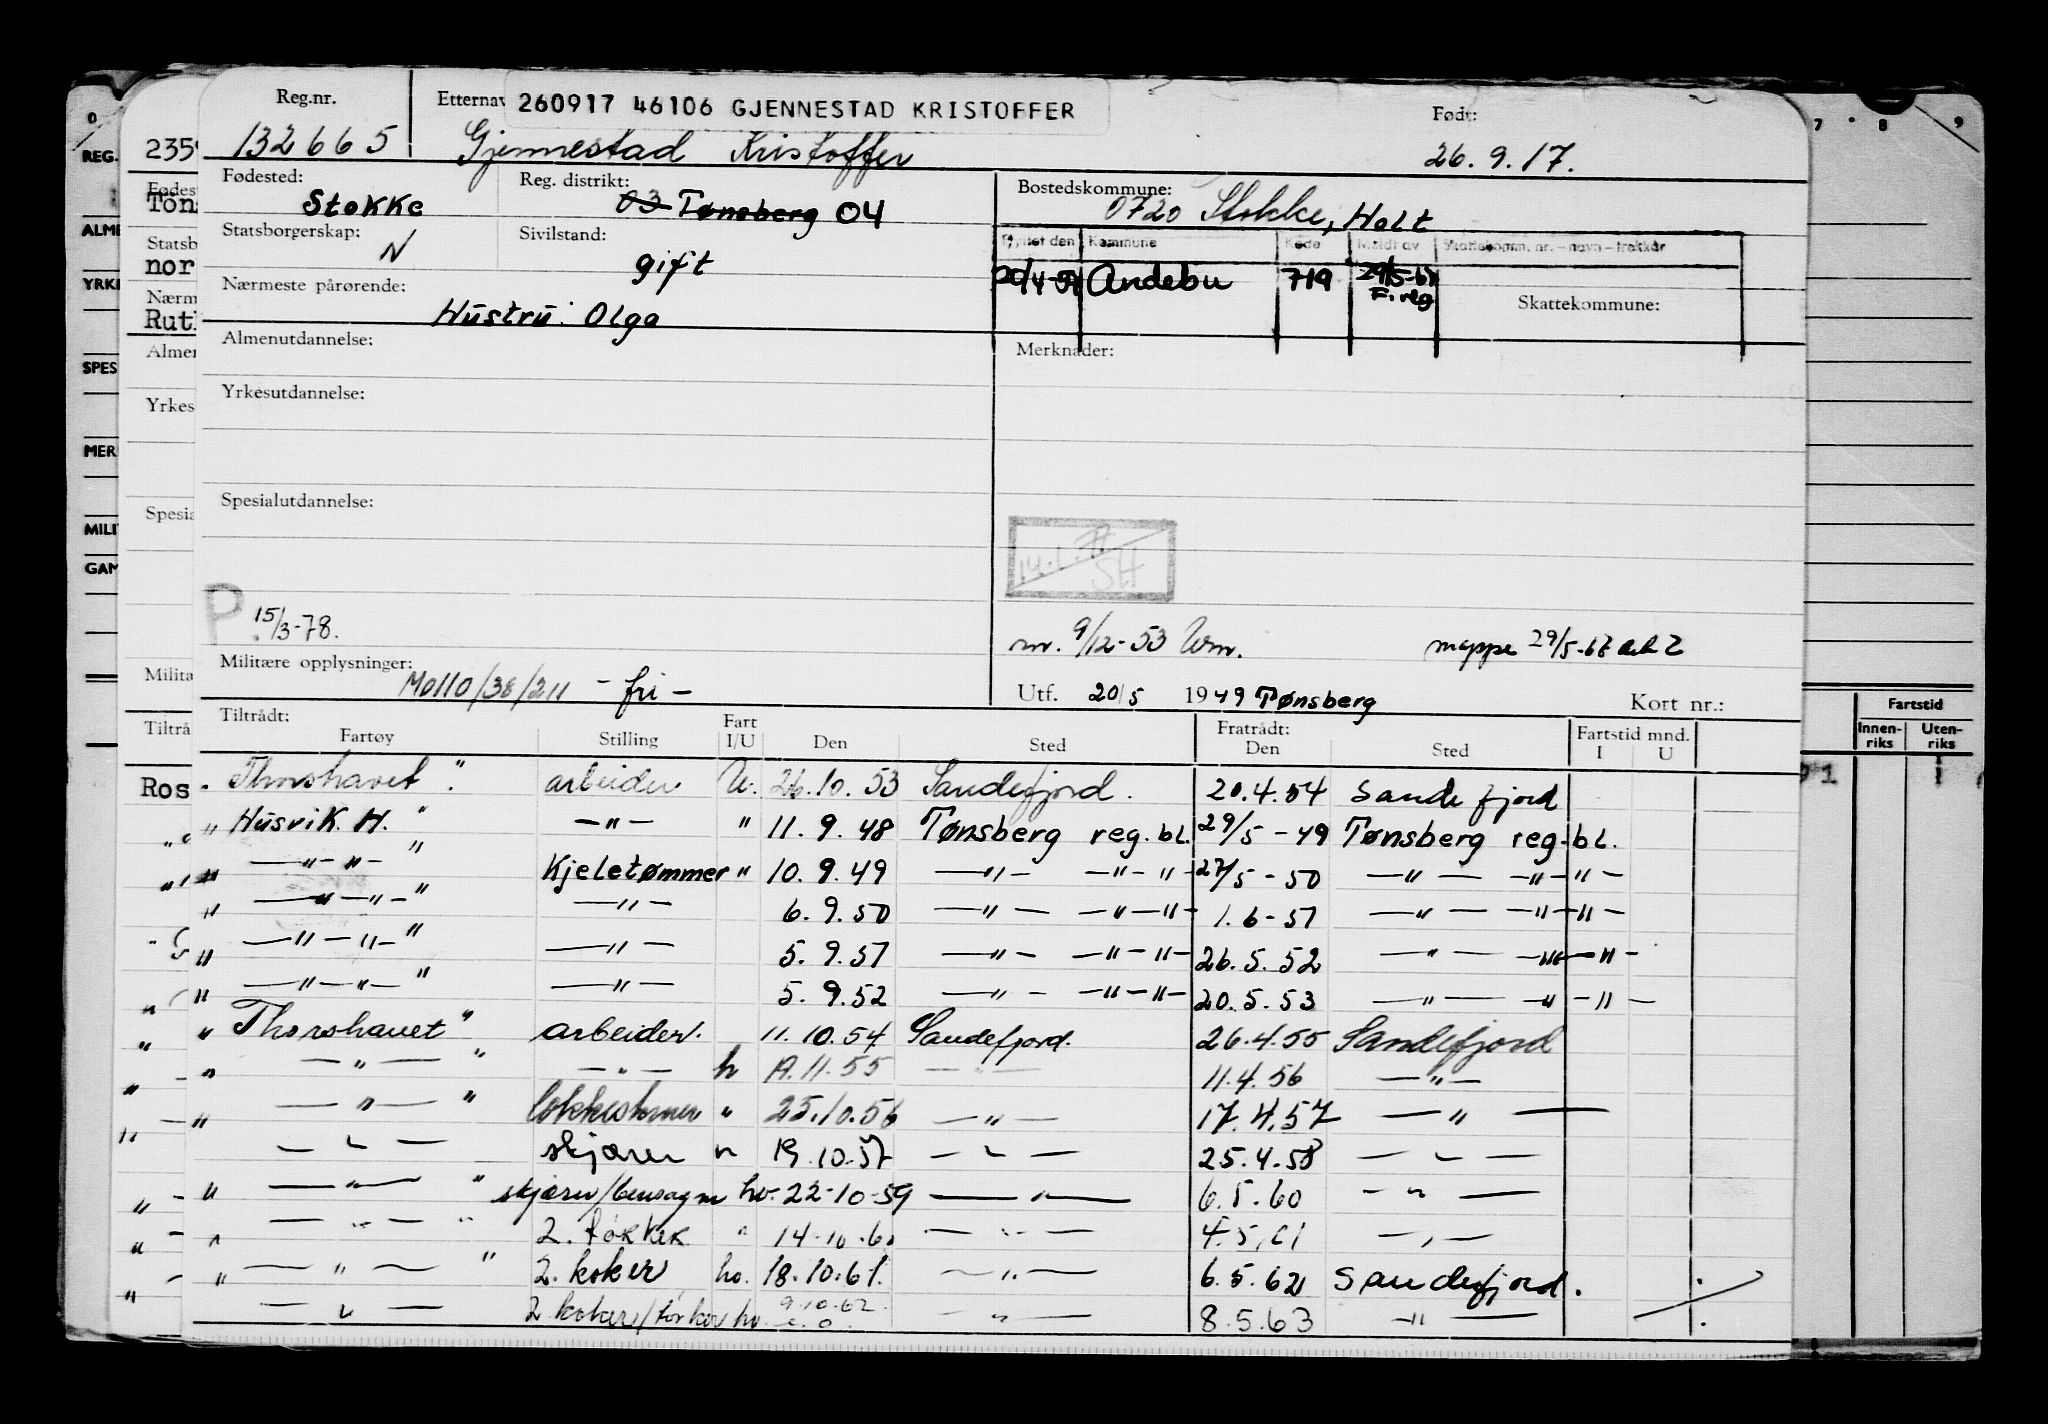 Reg.nr. Etternav 260917 46106 GJENNESTAD KRISTOFFER Født:
132665 Gjennestad Kristoffer 26.9.17.
Fødested: Stokke Reg. distrikt: 03 Tønsberg 04 Bostedskommune: 0720 Stokke, Holt
Statsborgerskap: N Sivilstand: gift
Flyttet den Kommune Kode Meldt av Skattekomm. nr. – navn – trekkår
20/4-59 Andebu 719 29/5-67 F.reg Skattekommune:
Nærmeste pårørende: Hustru: Olga
Almenutdannelse: Merknader:
Yrkesutdannelse:
Spesialutdannelse:
P. 15/3-78.
nr. 9/12-53 mappe 29/5-67
Militære opplysninger: M0110/38/211 - fri - Utf. 20/5 1949 Tønsberg Kort nr.:
Tiltrådt: Fratrådt: Fartstid mnd.
Fartøy Stilling Fart I/U Den Sted Den Sted I U
" Thorshavet " arbeider U. 26.10.53 Sandefjord. 20.4.54 Sandefjord
" Husvik. H. " —"— " 11.9.48 Tønsberg reg.bl. 29/5-49 Tønsberg reg.bl.
" —"—"— " Kjeletømmer " 10.9.49 —"— —"—"— 27/5-50 —"— —"—"—
" —"—"— " —"— 6.9.50 —"— —"—"— 1.6-51 —"— —"—"—
" —"—"— " —"— 5.9.51 —"— —"—"— 26.5.52 —"— —"—"—
" —"—"— " —"— 5.9.52 —"— —"—"— 20.5.53 —"— —"—"—
" Thorshavet " arbeider. 11.10.54 Sandefjord. 26.4.55 Sandefjord
" —"— " —"— h 19.11.55 —"— 11.4.56 —"—
" —"— " " 25.10.56 —"— 17.4.57 —"—
—"— skjærer " 19.10.57 —"— 25.4.58 —"—
" —"— " skjærer/bensagm hv. 22-10-59 —"— 6.5.60 —"—
" —"— " 2. tørker " 14-10.60 —"— 4.5.61 —"—
" —"— " 2. koker hv. 18.10.61. —"— 6.5.62 Sandefjord.
—"— 2 koker/tørker hv. 9.10.62. —"— 8.5.63 —"—
0
REG.
ALME
YRKE
SPES
MER
MILI
GAM
235
Fødes
Tøn
Statsb
nor
Nærm
Rut
Almen
Yrkes
Spesia
Milita
Tiltrå
Ros
7 8 9
Fartstid
Innen-riks Uten-riks